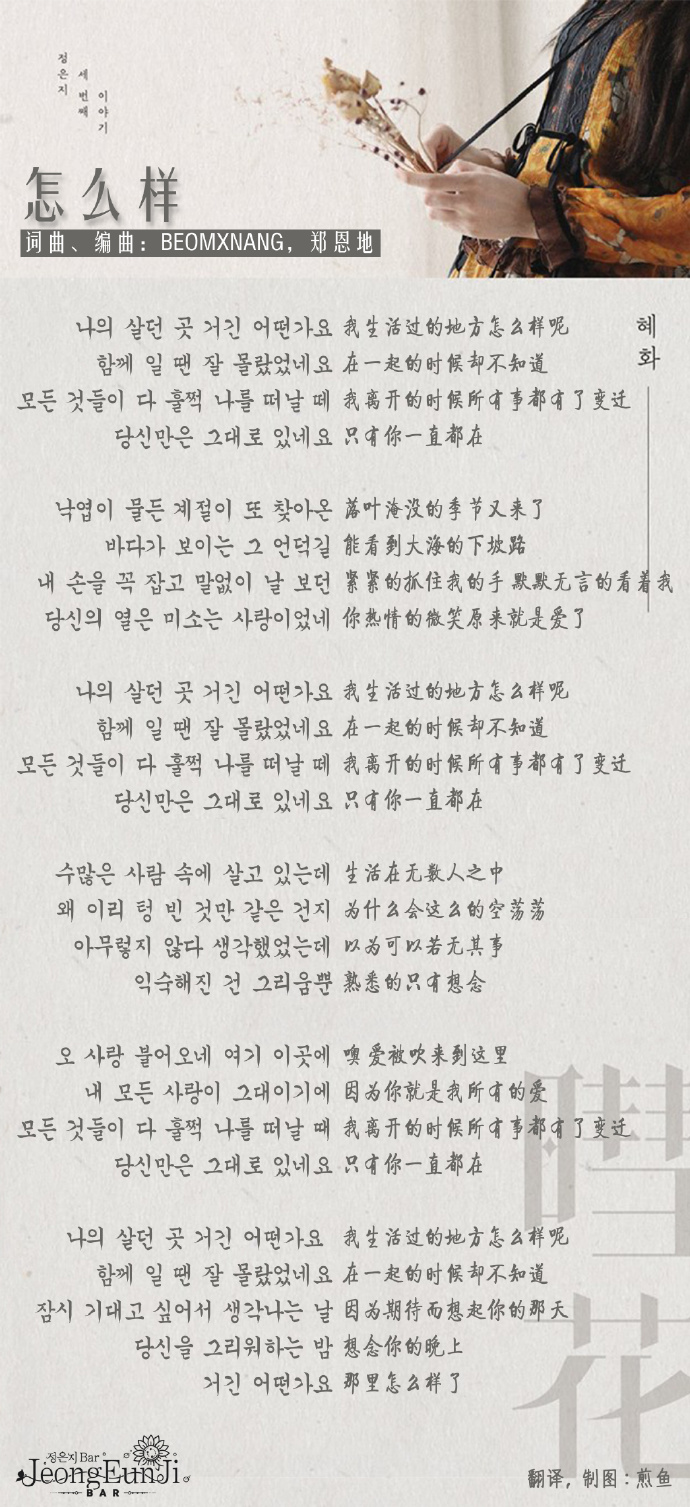 정은지
세 번째
이야기
怎么样
词曲、编曲：BEOMXNANG，郑恩地
혜화
나의 살던 곳 거긴 어떤가요 我生活过的地方怎么样呢
함께 일 땐 잘 몰랐었네요 在一起的时候却不知道
모든 것들이 다 훌쩍 나를 떠날 때 我离开的时候所有事都有了变迁
당신만은 그대로 있네요 只有你一直都在
낙엽이 물든 계절이 또 찾아온 落叶淹没的季节又来了
바다가 보이는 그 언덕길 能看到大海的下坡路
내 손을 꼭 잡고 말없이 날 보던 紧紧的抓住我的手 默默无言的看着我
당신의 옅은 미소는 사랑이었네 你热情的微笑原来就是爱了
나의 살던 곳 거긴 어떤가요 我生活过的地方怎么样呢
함께 일 땐 잘 몰랐었네요 在一起的时候却不知道
모든 것들이 다 훌쩍 나를 떠날 때 我离开的时候所有事都有了变迁
당신만은 그대로 있네요 只有你一直都在
수많은 사람 속에 살고 있는데 生活在无数人之中
왜 이리 텅 빈 것만 같은 건지 为什么会这么的空荡荡
아무렇지 않다 생각했었는데 以为可以若无其事
익숙해진 건 그리움뿐 熟悉的只有想念
오 사랑 불어오네 여기 이곳에 噢 爱被吹来到这里
내 모든 사랑이 그대이기에 因为你就是我所有的爱
모든 것들이 다 훌쩍 나를 떠날 때 我离开的时候所有事都有了变迁
당신만은 그대로 있네요 只有你一直都在
나의 살던 곳 거긴 어떤가요 我生活过的地方怎么样呢
함께 일 땐 잘 몰랐었네요 在一起的时候却不知道
잠시 기대고 싶어서 생각나는 날 因为期待而想起你的那天
당신을 그리워하는 밤 想念你的晚上
거긴 어떤가요 那里怎么样了
暳花
정은지 Bar
JeongEunJi
BAR
翻译，制图：煎鱼